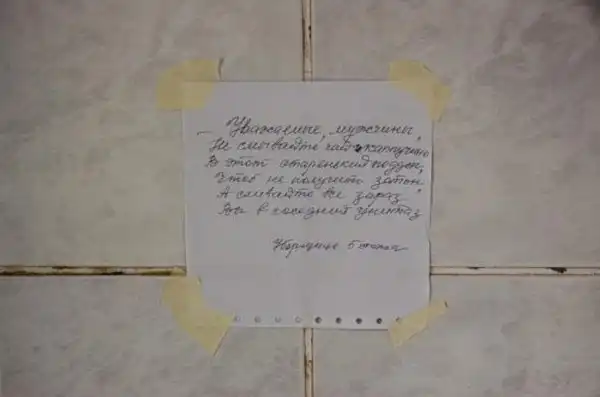 Уважаемые, мужчины,
Не смывайте чай, капучино
В этот старенький поддон,
Чтоб не получить затон
А сливайте все зараз
Вы в соседний унитаз
Уборщица 5 этажа